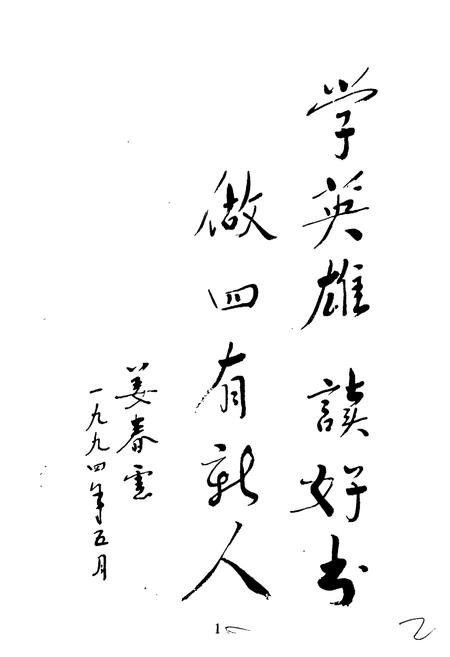 学英雄 読好书
做四有新人
姜春雲
一九九四年五月
1